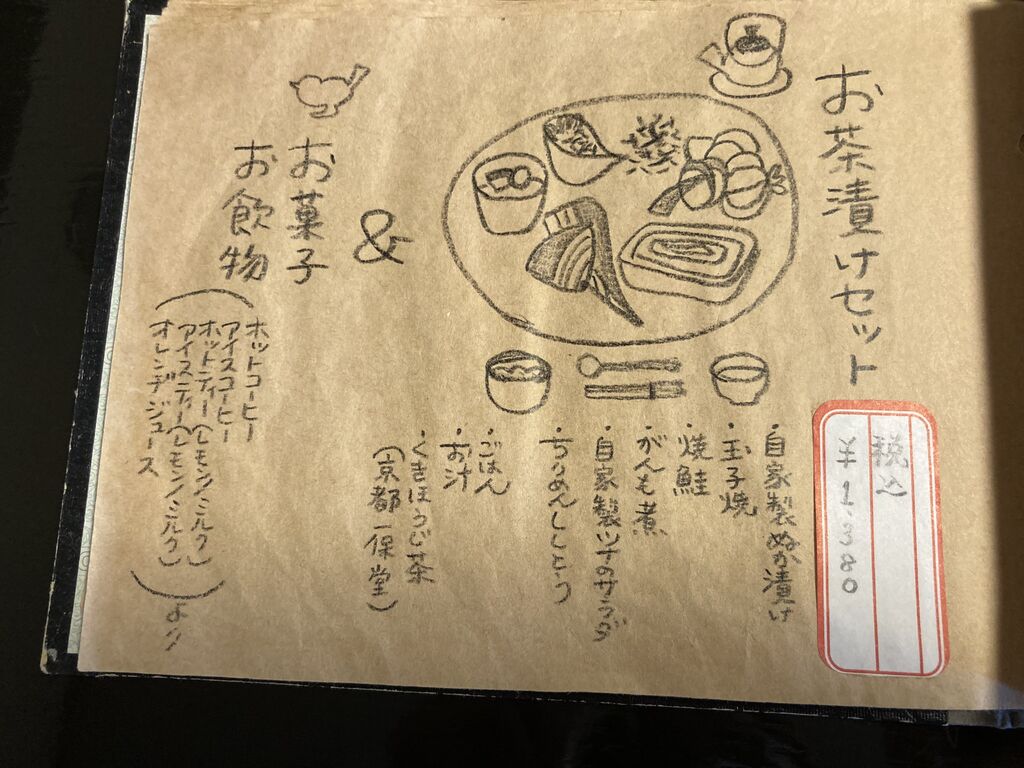 お茶漬けセット
税込
¥1,380
・自家製ぬか漬け
・玉子焼
・焼鮭
・がんも煮
・自家製ツナのサラダ
・ちりめんししとう
・ごはん
・お汁
・くきほうじ茶
(京都一保堂)
&
お菓子
お飲物
(ホットコーヒー
アイスコーヒー
ホットティー(レモン/ミルク)
アイスティー(レモン/ミルク)
オレンヂジュース)より